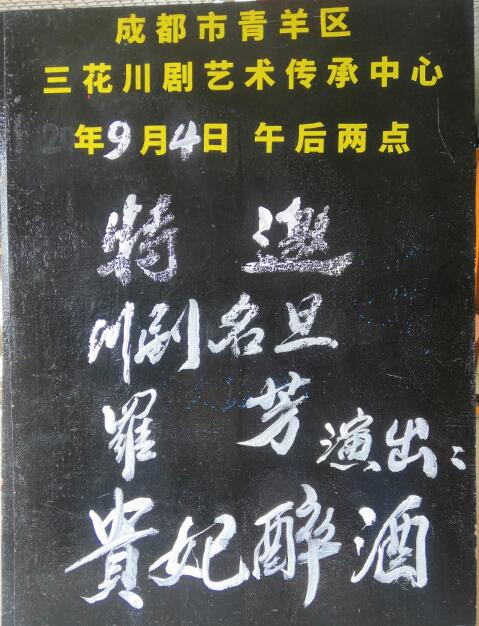 成都市青羊区
三花川剧艺术传承中心
年9月4日 午后两点
特邀
川剧名旦
羅芳演出:
貴妃醉酒